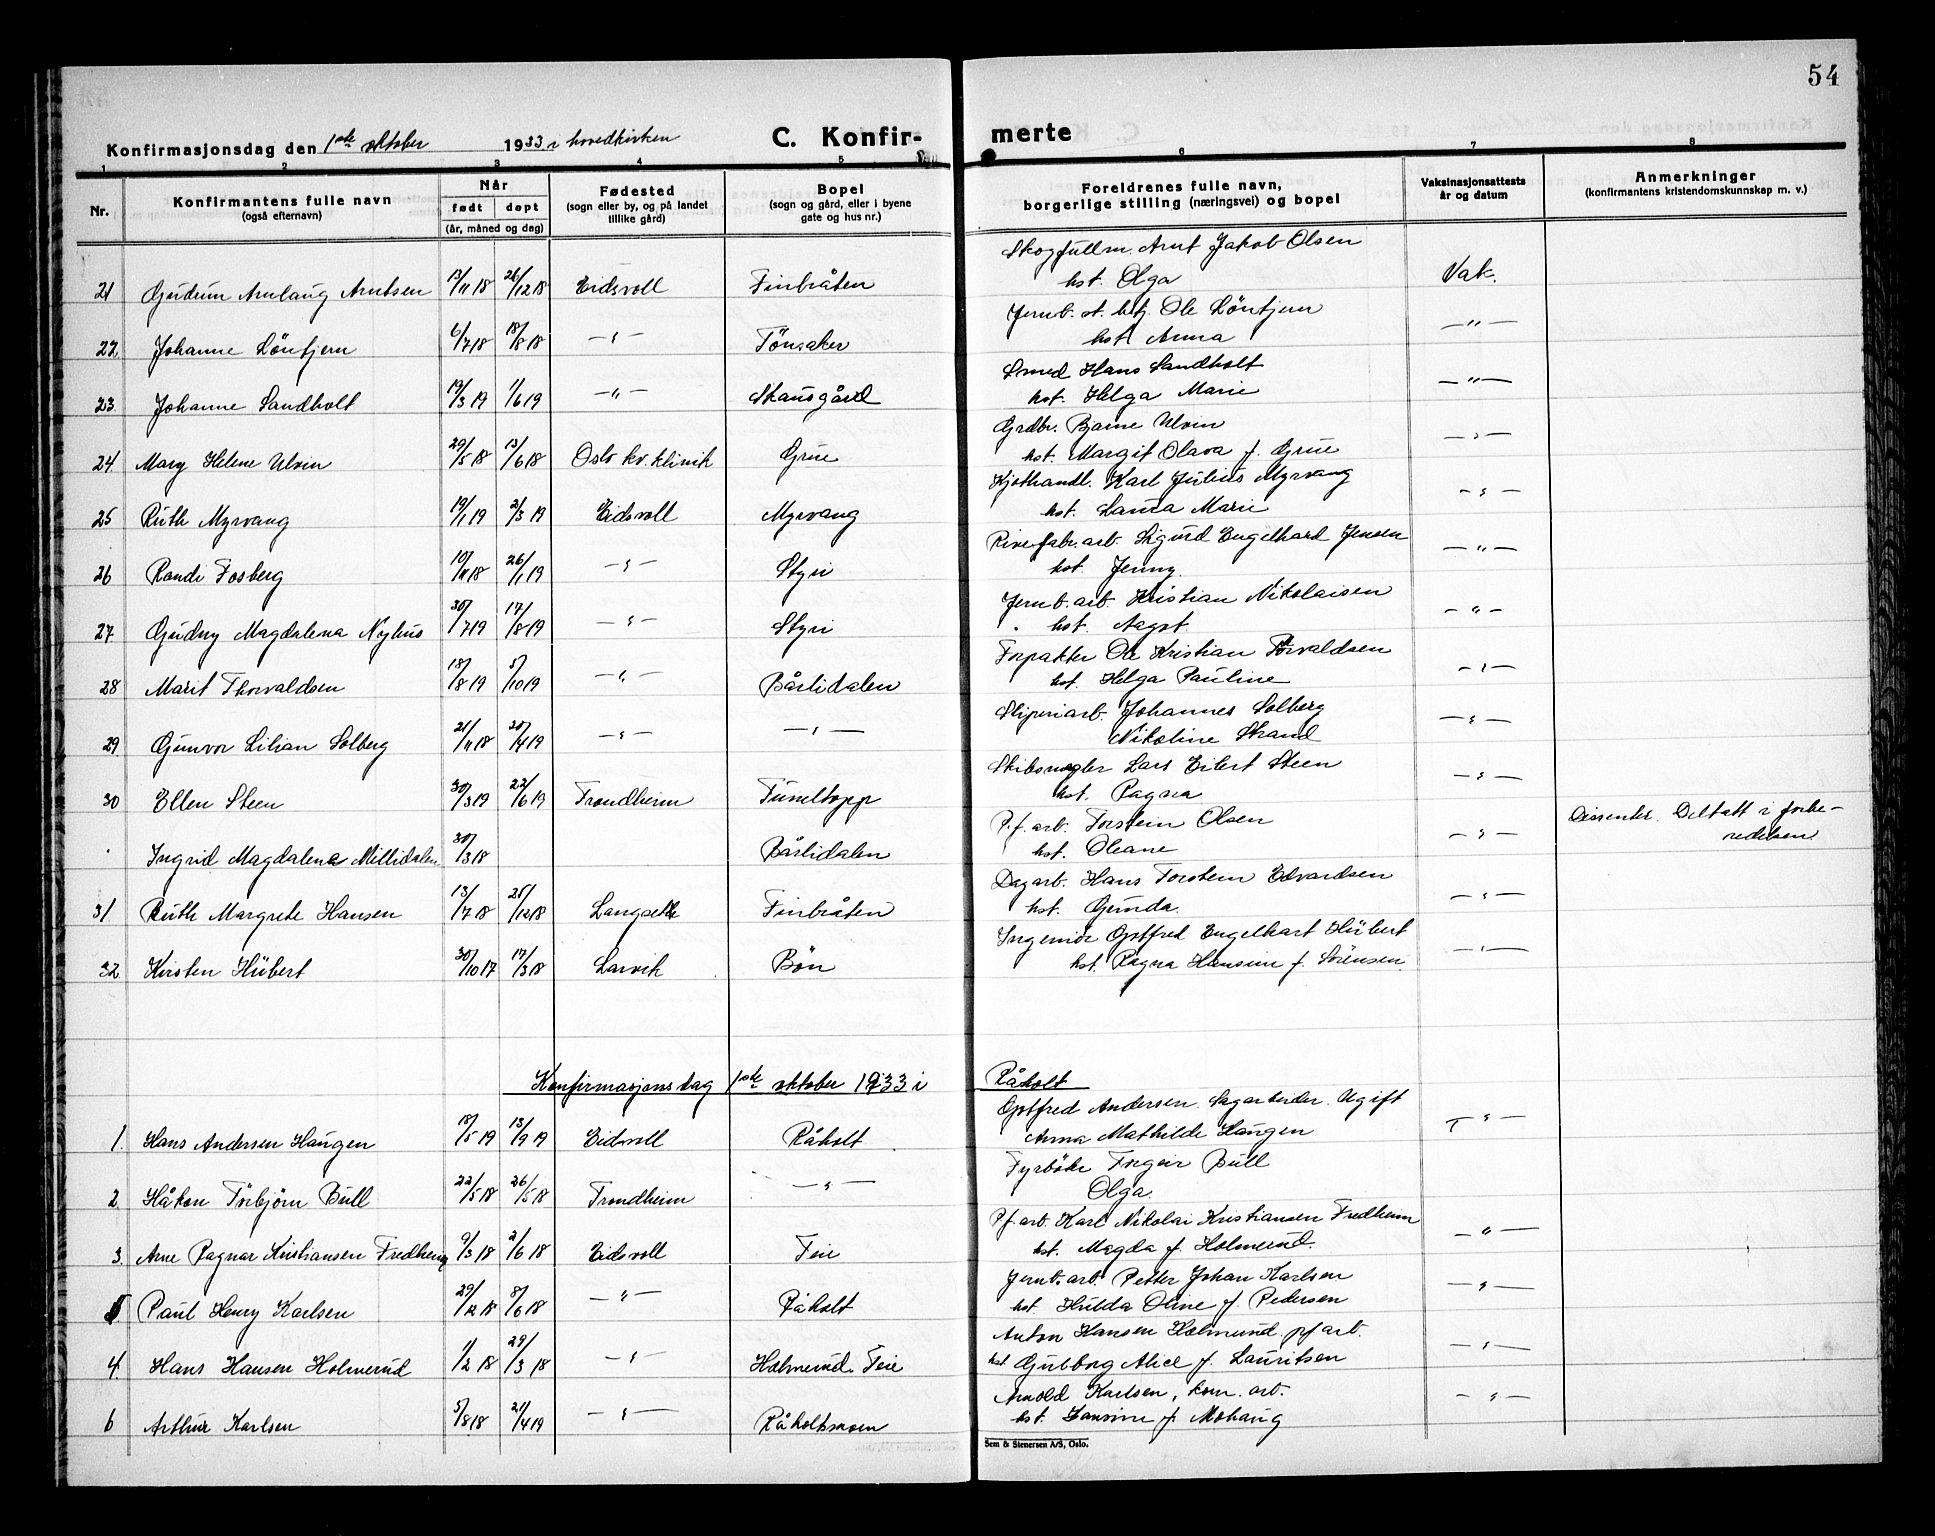 54
Konfirmasjonsdag den 1ste oktober 1933 i hovedkirken
C. Konfir-
merte
1 2 3 4 5 6 7 8
Nr.
Konfirmantens fulle navn
(også efternavn)
Når
født døpt
(år, måned og dag)
Fødested
(sogn eller by, og på landet
tillike gård)
Bopel
(sogn og gård, eller i byene
gate og hus nr.)
Foreldrenes fulle navn,
borgerlige stilling (næringsvei) og bopel
Vaksinasjonsattests
år og datum
Anmerkninger
(konfirmantens kristendomskunnskap m. v.)
Skogfullm. Arnt Jakob Olsen
21 Gudrun Arnlaug Arntsen 13/11 18 26/12 18 Eidsvoll Finbråten hst. Olga Vak.
Jernb. st. btj. Ole Löntjern
22. Johanne Löntjern 6/7 18 18/8 18 —„— Tönsaker hst. Anna —„—
Smed Hans Sandholt
23. Johanne Sandholt 19/3 19 1/6 19 —„— Skansgård hst. Helga Marie —„—
Grdbr. Bjarne Ulvin
24 Mary Helene Ulvin 29/5 18 13/6 18 Oslo kv. klinik Grue hst. Margit Olava f. Grue —„—
Kjøthandl. Karl Julius Myrvang
25 Ruth Myrvang 19/1 19 2/3 19 Eidsvoll Myrvang hst. Laura Marie —„—
Rivefabr. arb. Sigurd Engelhard Jensen
26 Randi Fosberg 10/11 18 26/1 19 —„— Styri hst. Jenny. —„—
Jernb. arb. Kristian Nikolaisen
27 Gudny Magdalena Nyhus 30/7 19 17/8 19 —„— Styri hst. Aagot. —„—
Forpakter Ole Kristian Torvaldsen
28 Marit Thorvaldsen 18/8 19 5/10 19 —„— Bårlidalen hst. Helga Pauline —„—
Sliperiarb. Johannes Solberg
29. Gunvor Lilian Solberg 21/11 18 20/4 19 —„— —„— Nikoline Strand —„—
Skibsmegler Lars Eilert Steen
30 Ellen Steen 30/3 19 22/6 19 Trondheim Tuneltopp hst. Ragna —„—
P.f. arb. Torstein Olsen
Dissenter. Deltatt i forbe-
redelsen
Ingrid Magdalena Millidalen 30/3 18 Bårlidalen hst. Oleane —„—
Dagarb. Hans Torstein Edvardsen
31 Ruth Margrete Hansen 13/7 18 25/12 18 Langsete Finbråten hst. Gunda. —„—
Ingeniör Gotfred Engelhart Hübert
32. Kirsten Hübert 30/10 17 17/3 18 Larvik Bön hst. Ragna Hansine f. Sörensen. —„—
Konfirmasjonsdag 1ste oktober 1933 i Råholt
Gotfred Andersen. Sagarbeider. Ugift
1. Hans Andersen Haugen 18/5 19 13/9 19 Eidsvoll Råholt Anna Mathilde Haugen —„—
Fyrböter Torgeir Bull
2. Håkon Torbjörn Bull 22/5 18 26/5 18 Trondheim —„— Olga.
P.f. arb. Karl Nikolai Kristiansen Fredheim
3. Arne Ragnar Kristiansen Fredheim 9/3 18 2/6 18 Eidsvoll Feie hst. Magda f. Holmerud. —„—
Jernb. arb. Petter Johan Karlsen
5 Paul Henry Karlsen 29/12 18 8/6 18 —„— Råholt hst. Hulda Oline f. Pedersen —„—
Anton Hansen Holmerud. pf arb.
4. Hans Hansen Holmerud 1/2 18 29/3 18 —„— Holmerud. Feie hst. Gulborg Alice f. Lauritsen —„—
Arnold Karlsen, kom. arb.
6 Arthur Karlsen 5/8 18 21/4 19 —„— Råholtmoen hst. Jansine f. Mohaug —„—
Sem & Stenersen A/S, Oslo.